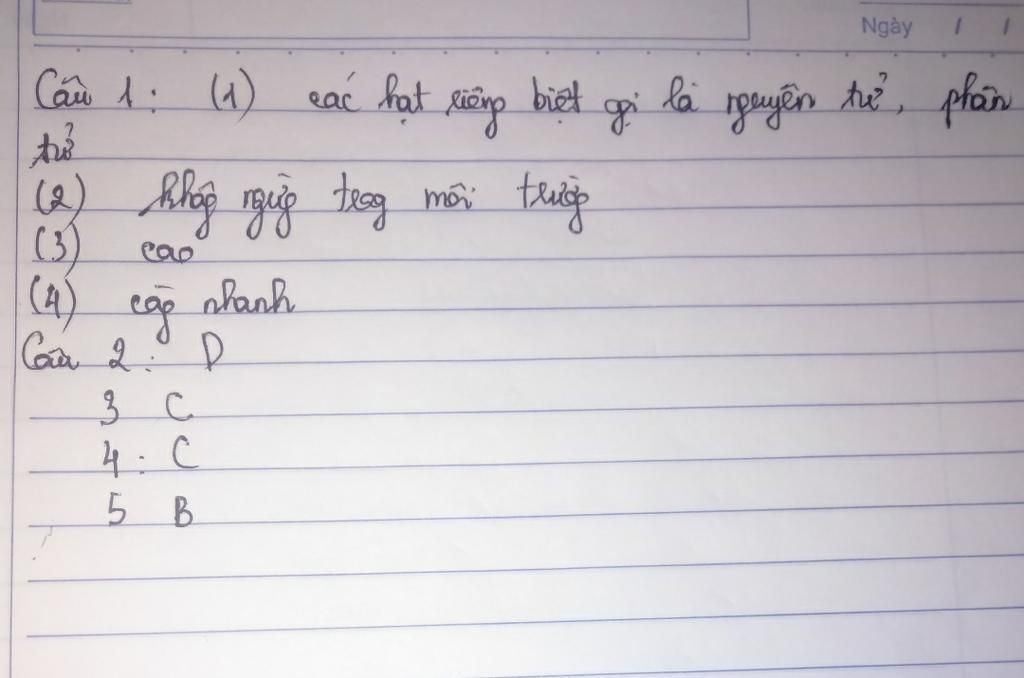 Ngày / /
Câu 1: (1) các hạt riêng biệt gọi là nguyên tử, phân
tử
(2) khôg ngừg trog môi trườg
(3) cao
(4) càg nhanh
Câu 2: D
3 C
4: C
5 B